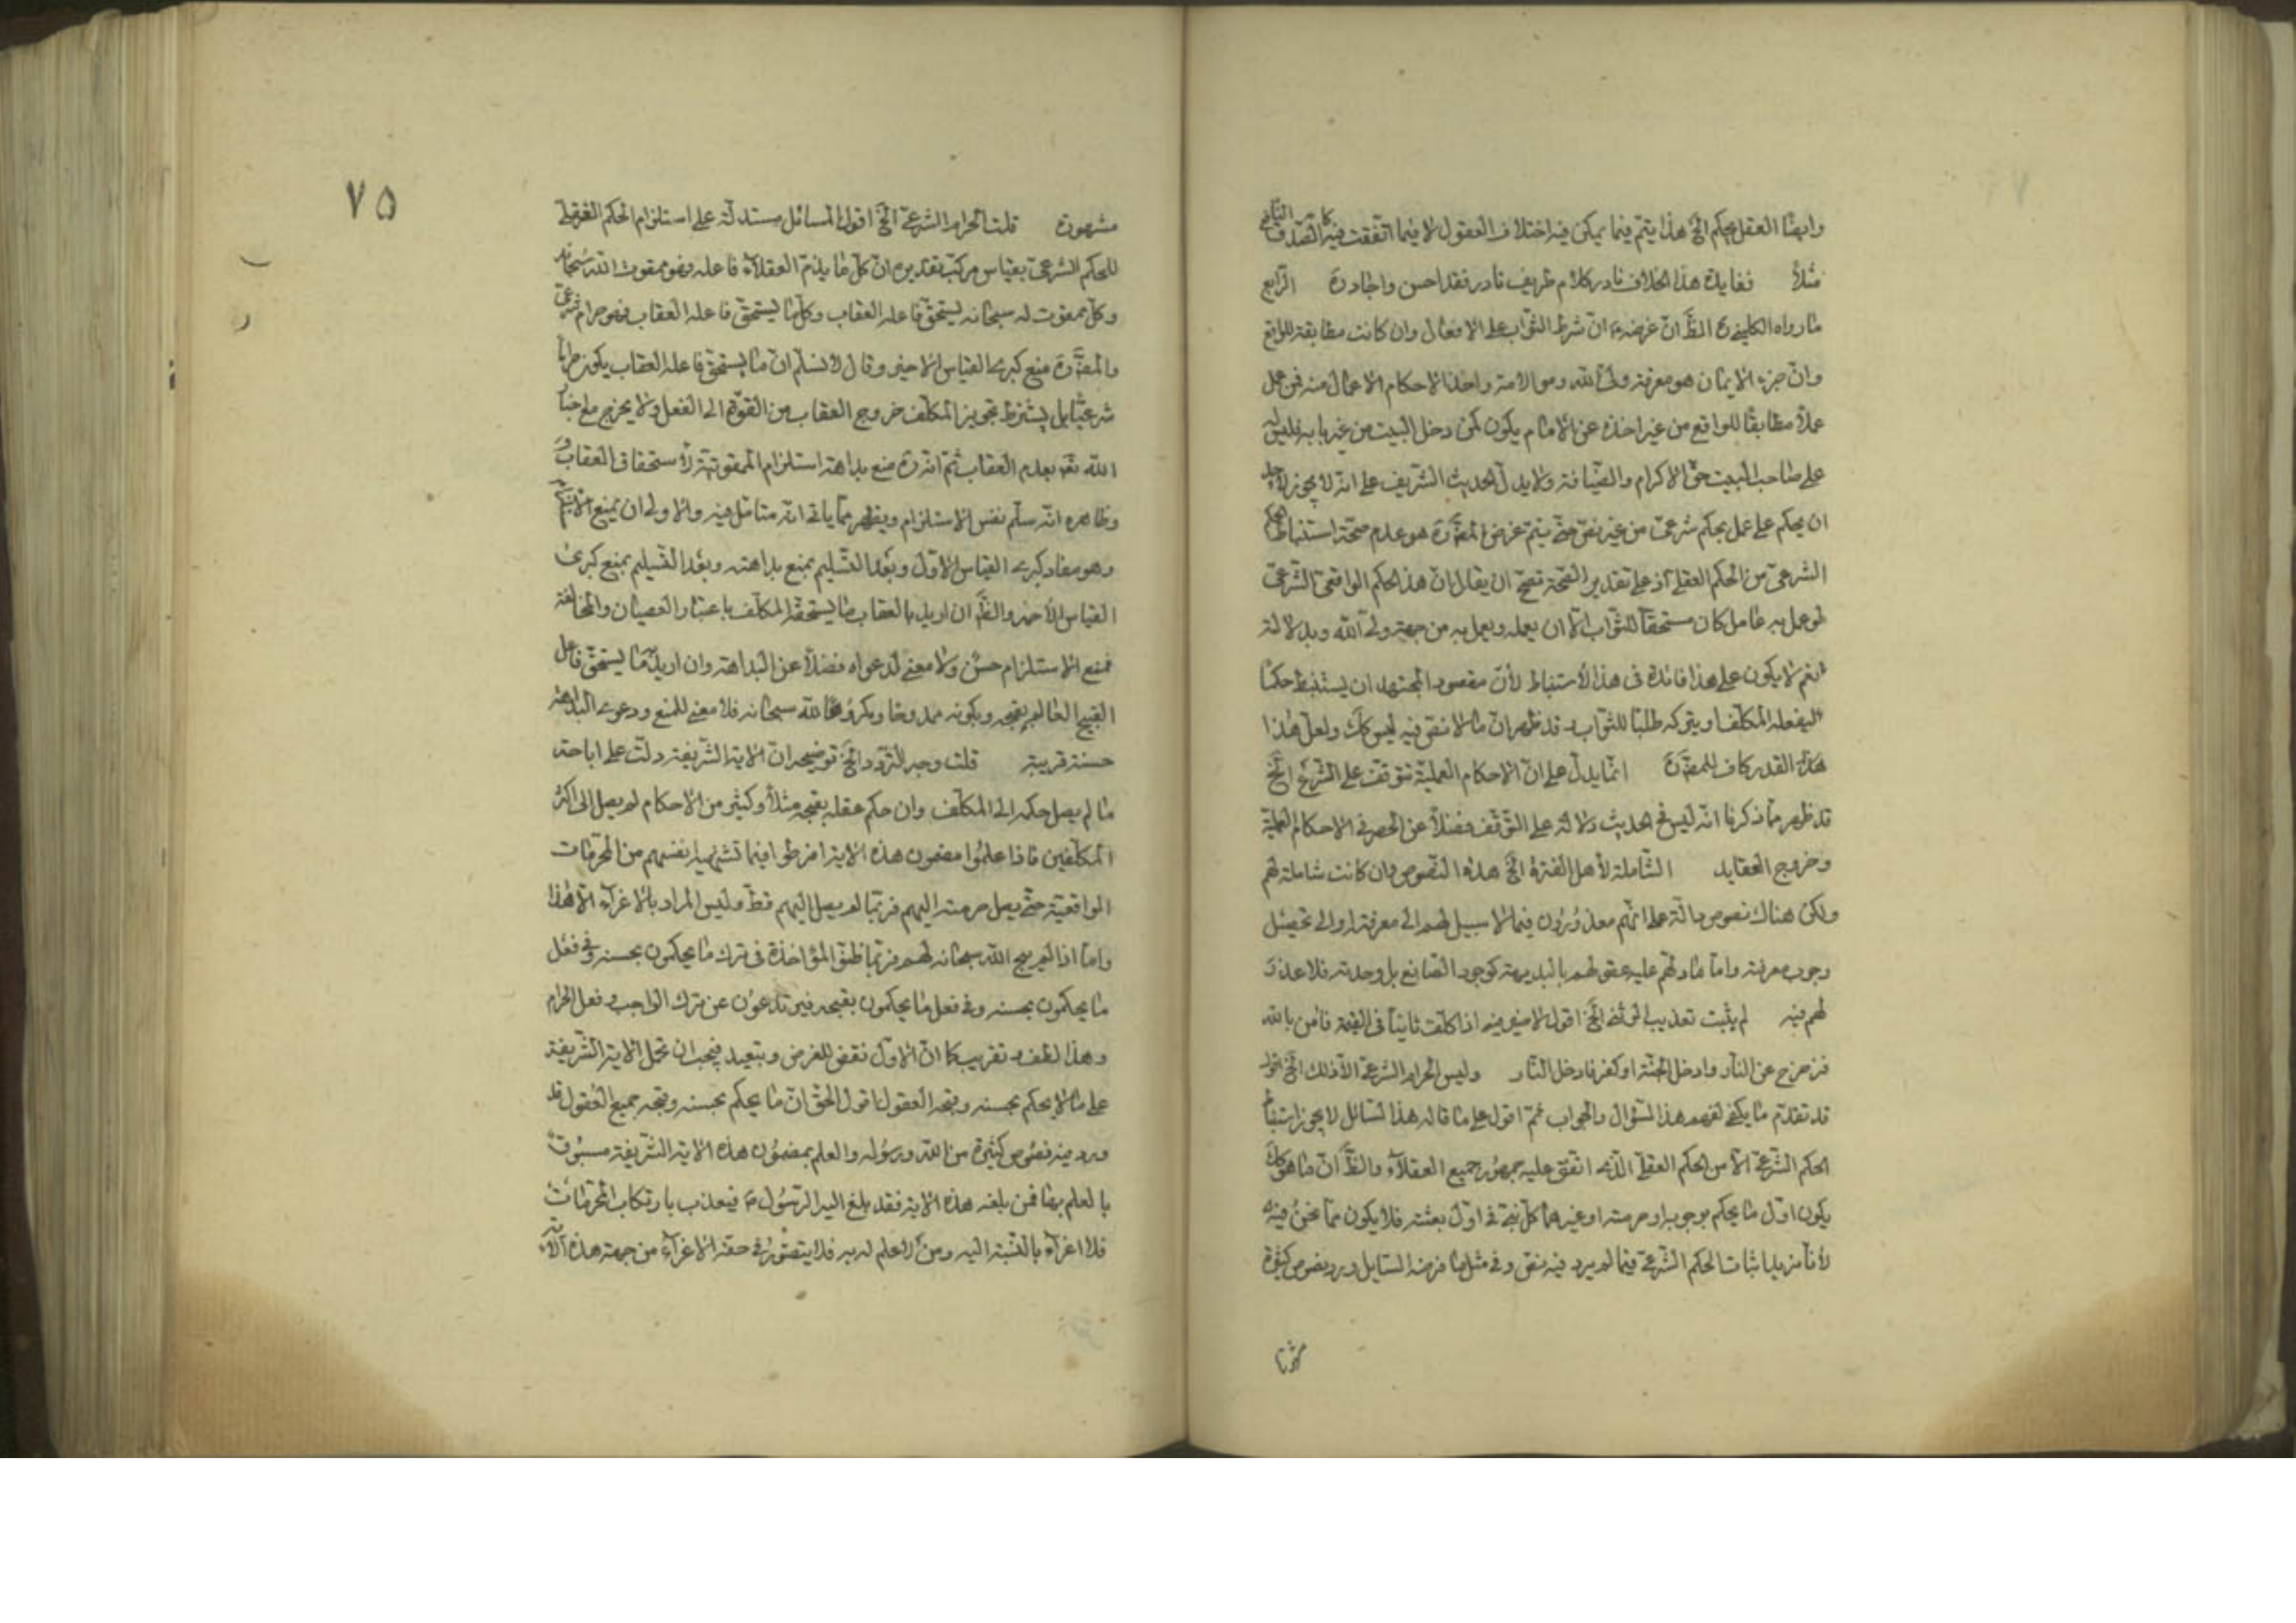 وايضًا العقل يحكم الخ هذا يتم فيما يمكن فيه اختلاف العقول لا فيما اتفقت فيه كالصدق النافع
مثلاً فغاية هذا الخلاف نادر كلام ظريف نادر فقد احسن واجاد ره الرابع
ما رواه الكليني ره الظ ان غرضه ان شرط الثواب على الافعال وان كانت مطابقة للواقع
وان جزء الايمان هو معرفة ولي الله وموالاته واخذ الاحكام الاعمال منه فمن عمل
عملاً مطابقًا للواقع من غير اخذه عن الامام يكون كمن دخل البيت من غير بابه فليس
على صاحب البيت حق الاكرام والضيافة ولا يدل الحديث الشريف على انه لا يجوز لاحد
ان يحكم على عمل بحكم شرعي من غير نص حتى يتم غرض المص ره هو عدم صحة استنباط الحكم
الشرعي من الحكم العقلي اذ على تقدير الصحة تصح ان يقال ان هذا الحكم الواقعي الشرعي
لو عمل به عامل كان مستحقا للثواب الا ان يعمله ويعمل به من جهة ولي الله وبدلالته
نعم لا يكون على هذا فائدة في هذا الاستنباط لأن مقصود المجتهد ان يستنبط حكما
ليفعله المكلف او يتركه طلبًا للثواب وقد ظهر ان ما لا نص فيه ليس كك ولعل هذا
هذا القدر كاف للمص ره انما يدل على ان الاحكام العملية تتوقف على الشرع الخ
قد ظهر مما ذكرنا انه ليس في الحديث دلالة على التوقف فضلاً عن الحصر في الاحكام العملية
وخروج العقايد الشاملة لأهل الفترة الخ هذه النصوص وان كانت شاملة لهم
ولكن هناك نصوص دالة على انهم معذورون فيما لا سبيل لهم الى معرفته او الى تحصيل
وجوب معرفته واما ما دلهم عليه عقولهم بالبديهة كوجود الصانع بل وحدته فلا عذر
لهم فيه لم يثبت تعذيب الوثني الخ اقول لا ضير فيه اذا كلف ثانيًا في القيمة فآمن بالله
فزحزح عن النار وادخل الجنة او كفر فادخل النار وليس الحرام الشرعي الا ذلك الخ اقول
قد تقدم ما يكفي لفهم هذا السؤال والجواب ثم اقول على ما قاله هذا السائل لا يجوز استنباط
الحكم الشرعي الا من الحكم العقلي الذي اتفق عليه جمهور جميع العقلاء والظ ان ما هو كك
يكون اول ما يحكم بوجوبه او حرمته او غيرهما كل نبي في اول بعثته فلا يكون مما نحن فيه
لأنا نريد اثبات الحكم الشرعي فيما لم يرد فيه نص وفي مثل ما فرضه السايل ورد نصوص كثيرة
مشهورة
مشهورة قلت الحرام الشرعي الخ اقول المسائل مستدلة على استلزام الحكم العقلي
للحكم الشرعي بقياس مركب تقديره ان كل ما يذم العقلاء فاعله فهو ممقوت الله سبحانه
وكل ممقوت له سبحانه يستحق فاعله العقاب وكل ما يستحق فاعله العقاب فهو حرام شرعي
والمص ره منع كبرى القياس الاخير وقال لا نسلم ان ما يستحق فاعله العقاب يكون حراما
شرعيًا بل يشترط تجويز المكلف خروج العقاب من القوة الى الفعل ولا يجزم
الله تعه بعدم العقاب ثم انه ره منع بداهة استلزام الممقوتية لأستحقاق العقاب
وظاهره انه سلم نفس الاستلزام ويظهر مما ياتي انه متامل فيه والاولى ان يمنع
وهو مفاد كبرى القياس الاول وبعد التسليم بمنع بداهته وبعد التسليم بمنع كبرى
القياس الأخير والظ ان اريد بالعقاب ما يستحقه المكلف باعتبار العصيان والمخالفة
فمنع الاستلزام حسن ولا معنى لدعواه فضلاً عن البداهة وان اريد ما يستحق فاعل
القبيح العالم بقبحه وبكونه ممدوحا ومكروها لله سبحانه فلا معنى للمنع ودعوى البداهة
حسنة قريبة قلت وجه التردد الخ توضيحه ان الاية الشريفة دلت على اباحة
ما لم يصل حكمه الى المكلف وان حكم عقله بقبحه مثلاً وكثير من الاحكام لم يصل الى اكثر
المكلفين فاذا علموا مضمون هذه الاية افرطوا فيما تشتهيه انفسهم من المحرمات
الواقعية حتى يصل حرمته اليهم فربما لم يصل اليهم قط وليس المراد بالاغراء الا هذا
واما اذا لم يبح الله سبحانه لهم فربما ظنوا المؤاخذة في ترك ما يحكمون بحسنه وفي فعل
ما يحكمون بحسنه وفي فعل ما يحكمون بقبحه فيرتدعون عن ترك الواجب وفعل الحرام
وهذا لطف وتقريب كما ان الاول نقض للغرض وتبعيد فيجب ان تحمل الاية الشريفة
على ما لا يحكم بحسنه وقبحه العقول اقول الحق ان ما يحكم بحسنه وقبحه جميع العقول قد
ورد فيه نصوص كثيرة من الله ورسوله والعلم بمضمون هذه الاية الشريفة مسبوق
بالعلم بها فمن بلغه هذه الاية فقد بلغ اليه الرسول ص فيعذب بارتكاب المحرمات
فلا اغراء بالنسبة اليه ومن لا علم له به فلا يتصور في حقه الاغراء من جهة هذه الآية
٧٥